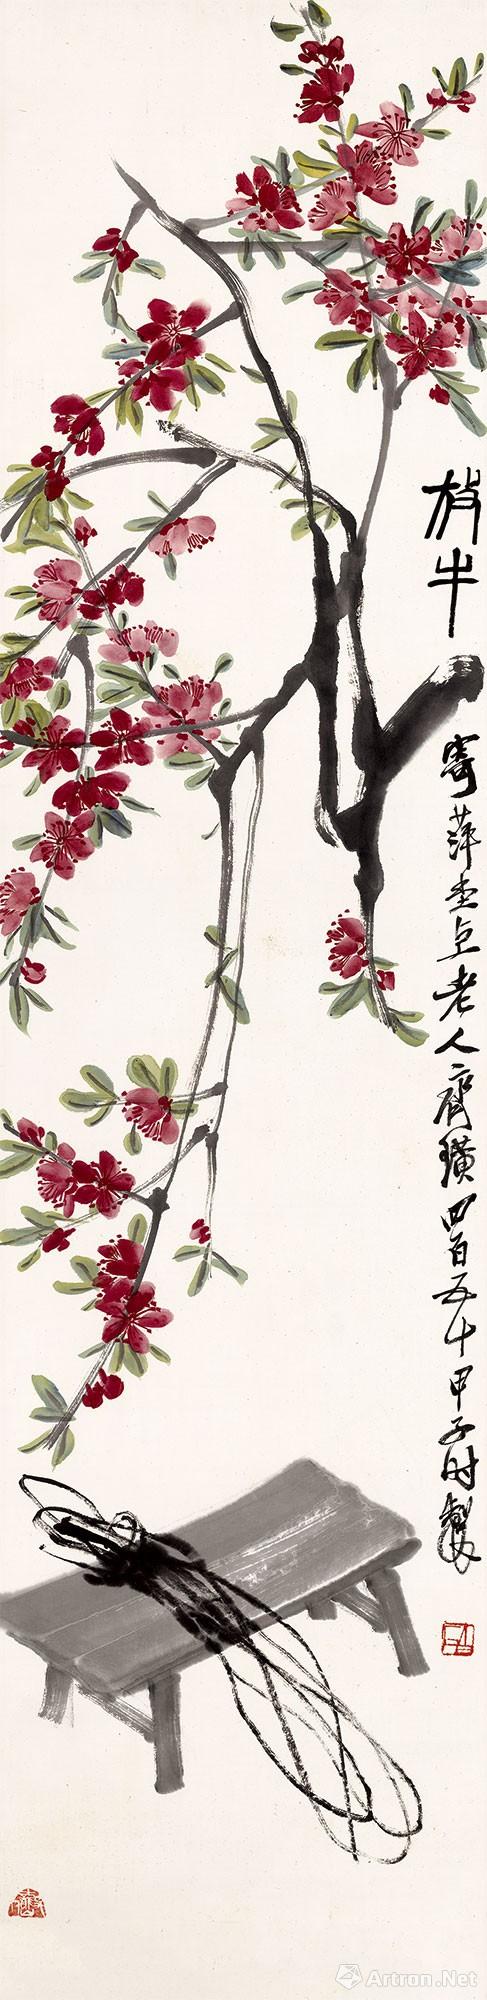 放牛
寄萍堂上老人齊璜四百五十甲子時製
Artron.Net